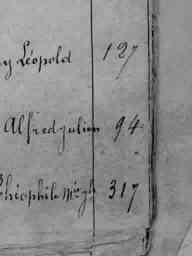 y Léopold 127
Alfred julien 94
Théophile 317